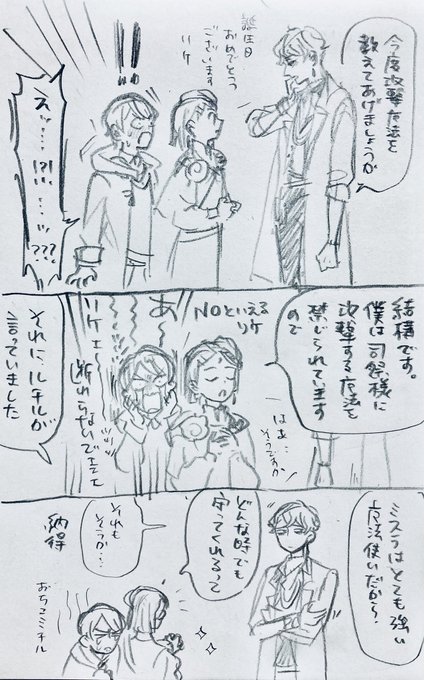 今度攻撃魔法を
教えてあげましょうか
誕生日
おめでとう
ございます
リケ
!!
結構です。
僕は司祭様に
攻撃する魔法を
禁じられています
ので
はあ…
そうですか
NOといえる
リケ
あ〜
リケェ〜
それにルチルが
言っていました
ミスラはとても強い
魔法使いだから、
どんな時でも
守ってくれるって
それも
そうか…
納得
おちこミチル